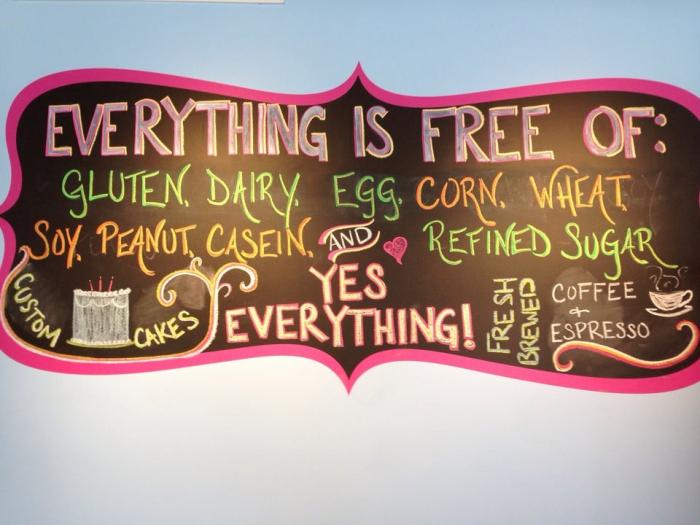 EVERYTHING IS FREE OF:
GLUTEN, DAIRY, EGG, CORN, WHEAT,
SOY, PEANUT, CASEIN, AND REFINED SUGAR
YES
EVERYTHING!
CUSTOM
CAKES
FRESH
BREWED
COFFEE
+
ESPRESSO